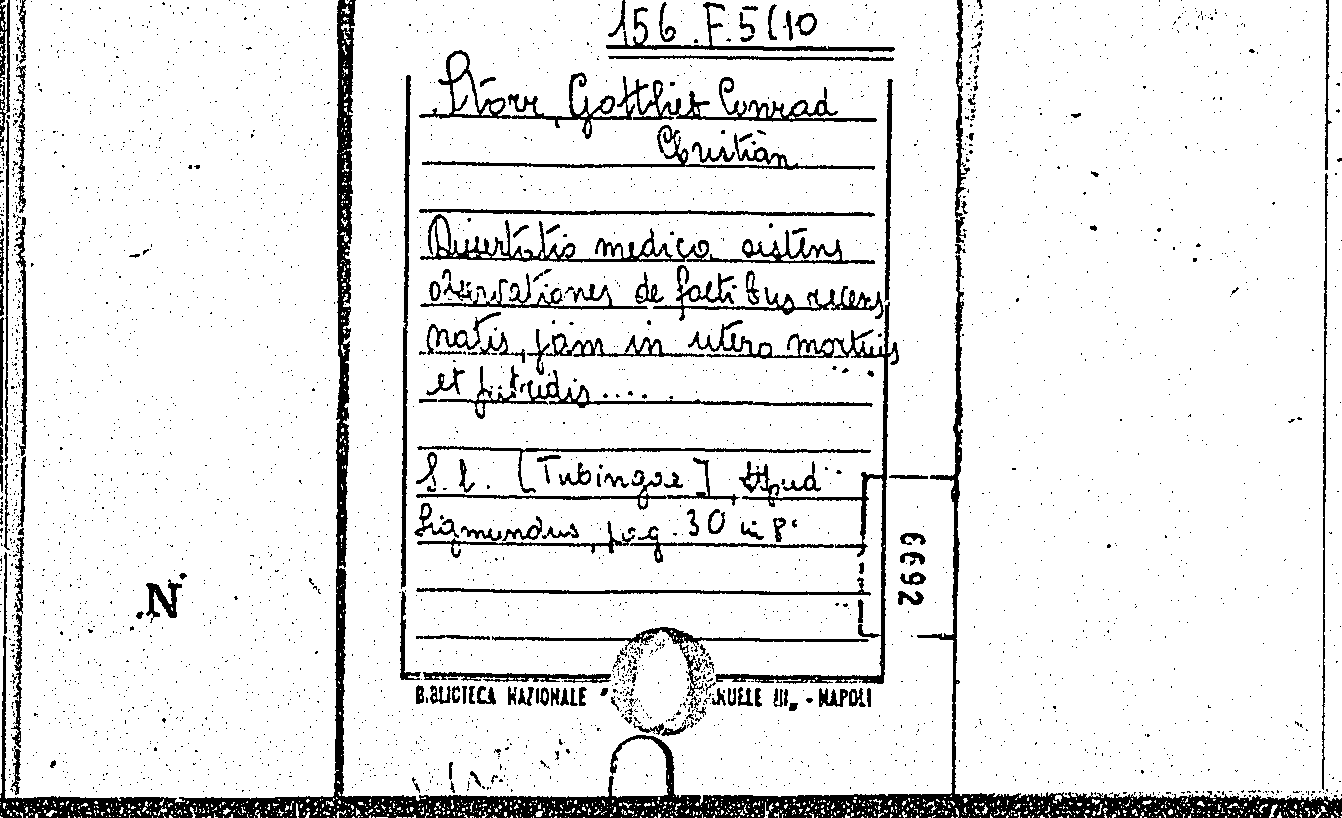 156.F.5(10
Storr, Gottlieb Conrad
Christian
Dissertatio medica sistens
observationes de foetibus recens
natis, jam in utero mortuis
et putridis....
S. l. [Tubingae], Apud
Sigmundus, pag. 30 in 8°
6692
N
BIBLIOTECA NAZIONALE " ANUELE III„ - NAPOLI